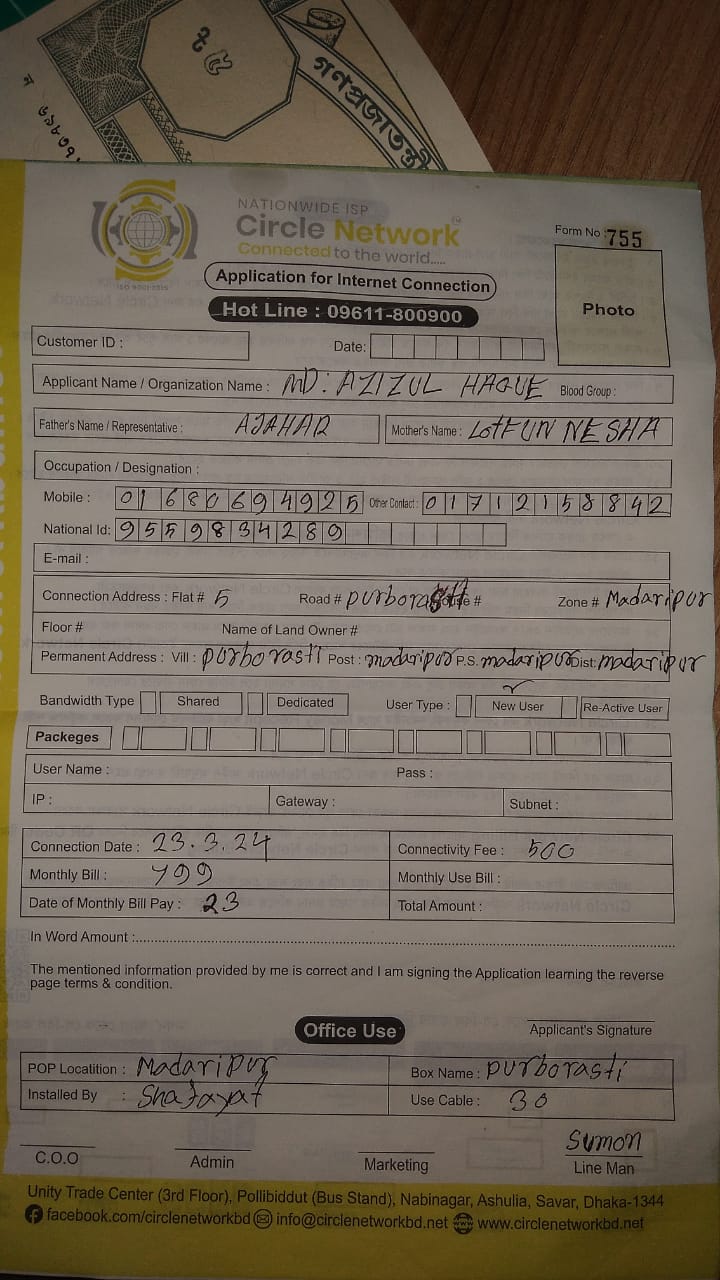 ২৫
গণপ্রজাতন্ত্রী
NATIONWIDE ISP
Circle Network
Connected to the world.....
ISO 9001:2015
Form No : 755
Application for Internet Connection
Photo
Hot Line : 09611-800900
Customer ID :
Date:
Applicant Name / Organization Name : MD: AZIZUL HAQUE Blood Group :
Father's Name / Representative : AJAHAR Mother's Name : LOTFUN NESHA
Occupation / Designation :
Mobile : 01680694925 Other Contact : 01712158842
National Id: 9559834289
E-mail :
Connection Address : Flat # 5 Road # purborasti House # Zone # Madaripur
Floor # Name of Land Owner #
Permanent Address : Vill : purborasti Post : madaripur P.S. madaripur Dist: madaripur
Bandwidth Type Shared Dedicated User Type : New User Re-Active User
Packeges
User Name : Pass :
IP : Gateway : Subnet :
Connection Date : 23.3.24 Connectivity Fee : 500
Monthly Bill : 799 Monthly Use Bill :
Date of Monthly Bill Pay : 23 Total Amount :
In Word Amount :
The mentioned information provided by me is correct and I am signing the Application learning the reverse
page terms & condition.
Applicant's Signature
Office Use
POP Locatition : Madaripur Box Name : purborasti
Installed By : Shafayat Use Cable : 30
Sumon
C.O.O Admin Marketing Line Man
Unity Trade Center (3rd Floor), Pollibiddut (Bus Stand), Nabinagar, Ashulia, Savar, Dhaka-1344
facebook.com/circlenetworkbd info@circlenetworkbd.net www.circlenetworkbd.net